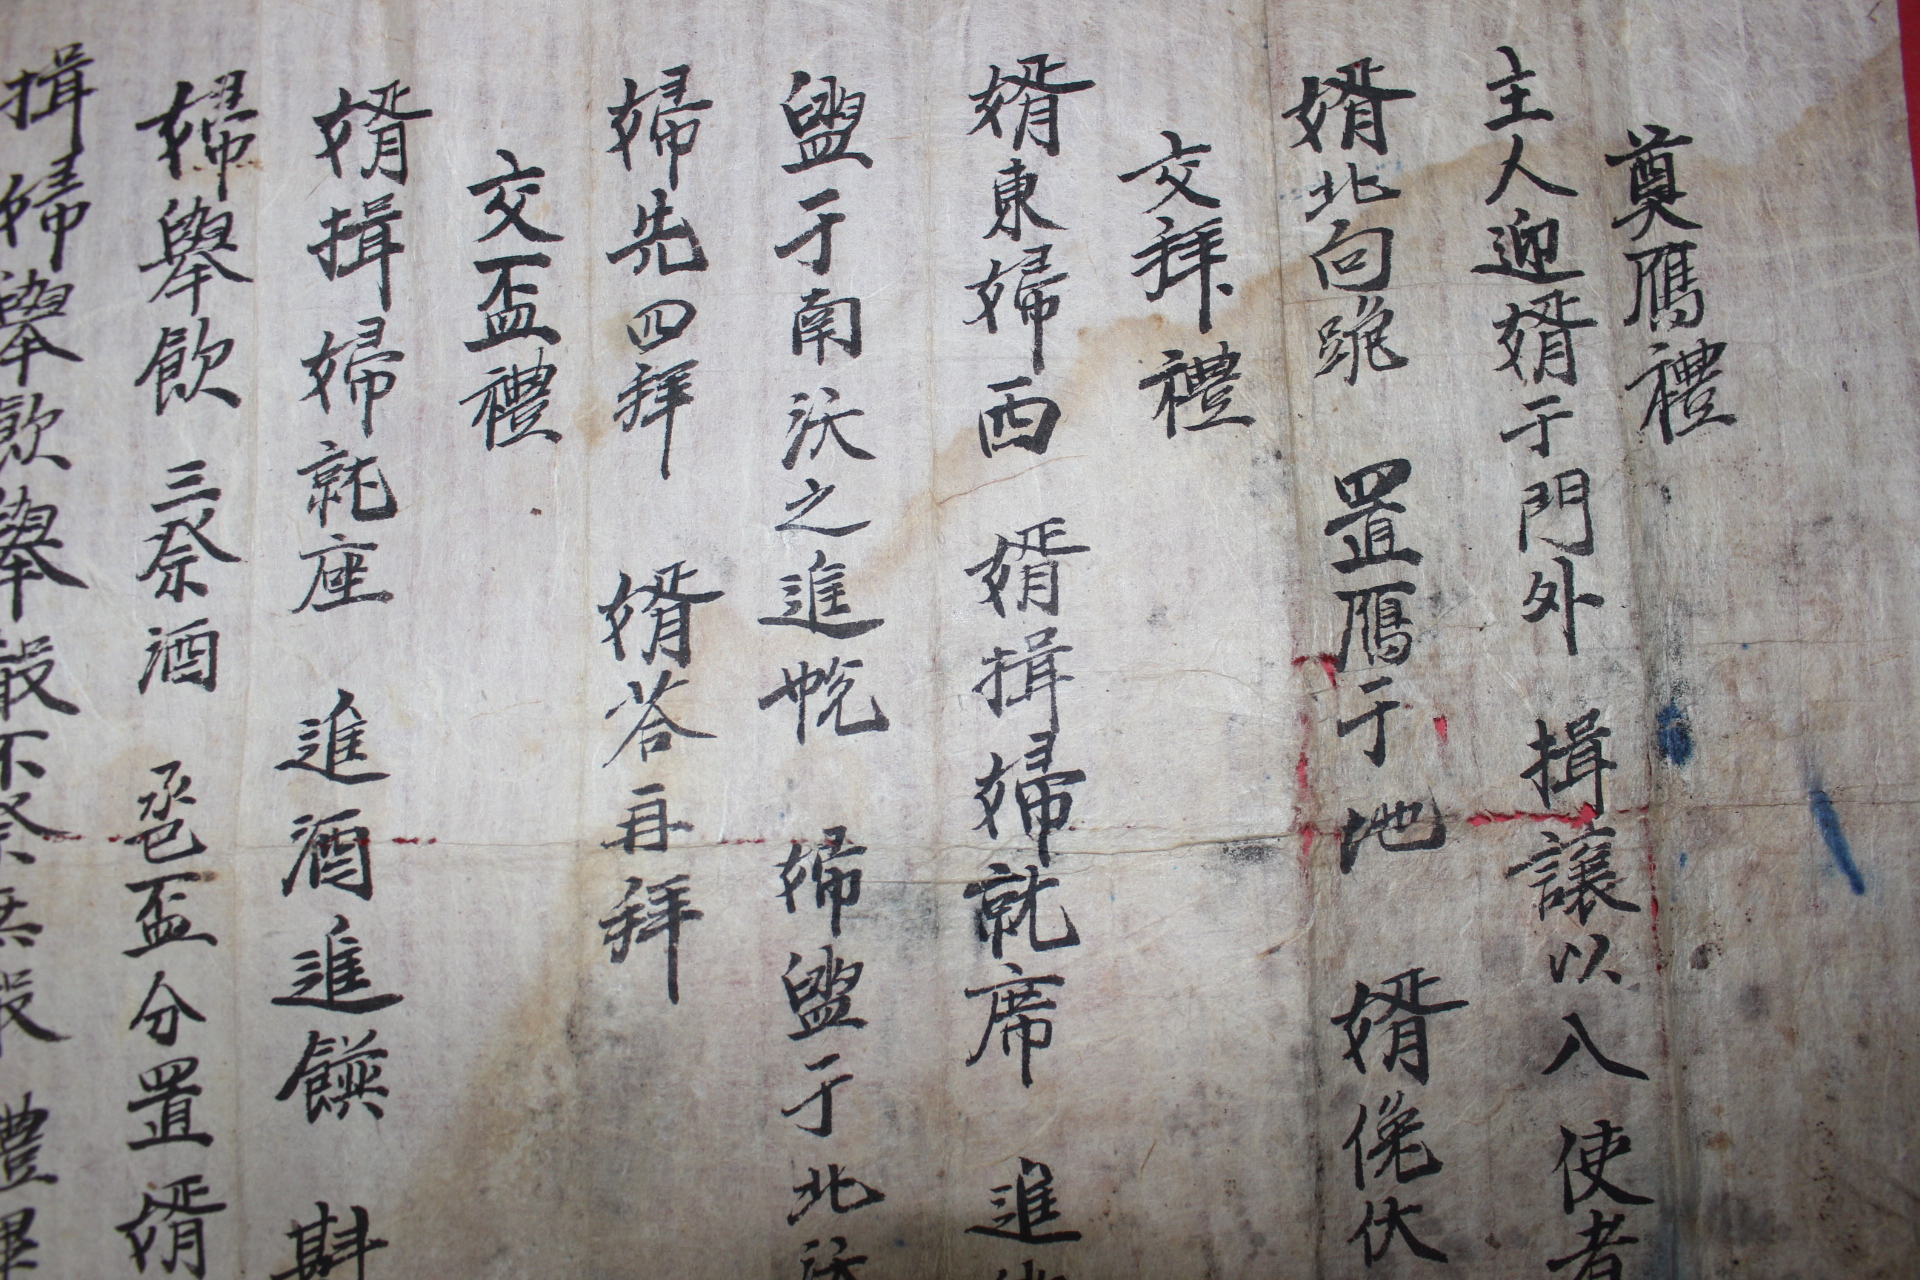 奠鴈禮
主人迎婿于門外 揖讓以入 使者
婿北向跪 置鴈于地 婿俛伏
交拜禮
婿東婦西 婿揖婦就席 進
盥于南沃之進帨 婦盥于北沃
婦先四拜 婿荅再拜
交盃禮
婿揖婦就座 進酒進饌 斟
婦擧飮 三祭酒 巹盃分置婿
揖婦擧飮擧殽不祭无殽 禮畢